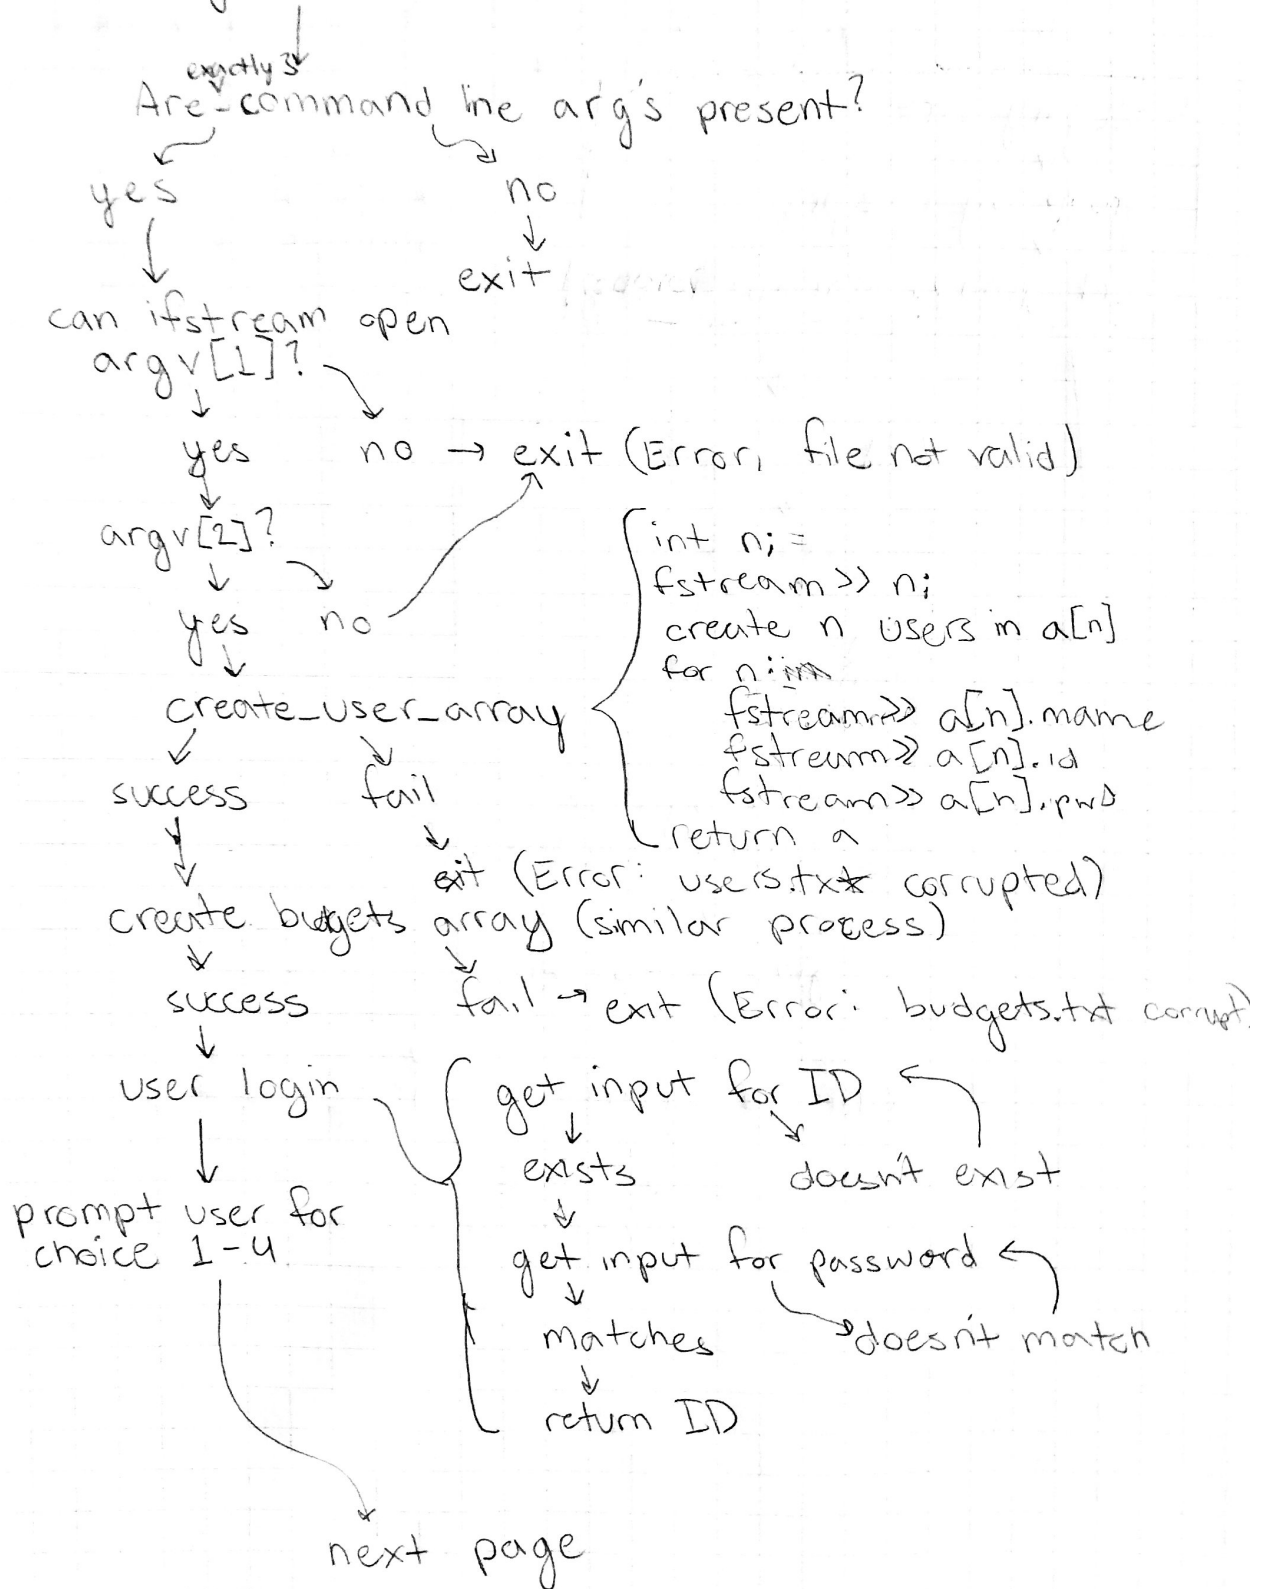 exactly 3
Are command line arg's present?
yes no
exit
can ifstream open
argv[1]?
yes no → exit (Error, file not valid)
argv[2]?
yes no
int n; =
fstream >> n;
create n users in a[n]
for n:
create_user_array
fstream >> a[n].name
fstream >> a[n].id
fstream >> a[n].pwd
return a
success fail
exit (Error: users.txt corrupted)
create budgets array (similar process)
success fail → exit (Error: budgets.txt corrupt)
user login
get input for ID
exists doesn't exist
prompt user for
choice 1-4
get input for password
matches doesn't match
return ID
next page